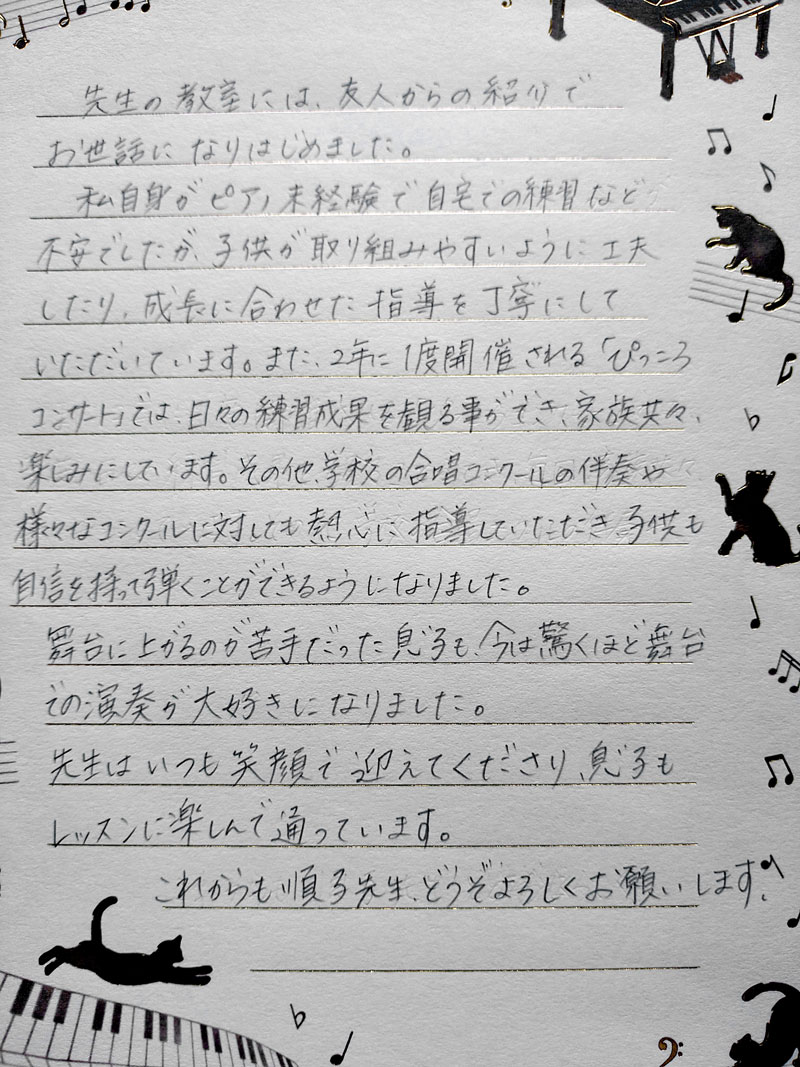 先生の教室には、友人からの紹介で
お世話になりはじめました。
私自身がピアノ未経験で自宅での練習など
不安でしたが、子供が取り組みやすいように工夫
したり、成長に合わせた指導を丁寧にして
いただいています。また、2年に1度開催される「ぴっころ
コンサート」では、日々の練習成果を観る事ができ、家族共々、
楽しみにしています。その他、学校の合唱コンクールの伴奏や
様々なコンクールに対しても熱心に指導していただき子供も
自信を持って弾くことができるようになりました。
舞台に上がるのが苦手だった息子も、今は驚くほど舞台
での演奏が大好きになりました。
先生はいつも笑顔で迎えてくださり、息子も
レッスンに楽しんで通っています。
これからも順子先生、どうぞよろしくお願いします。